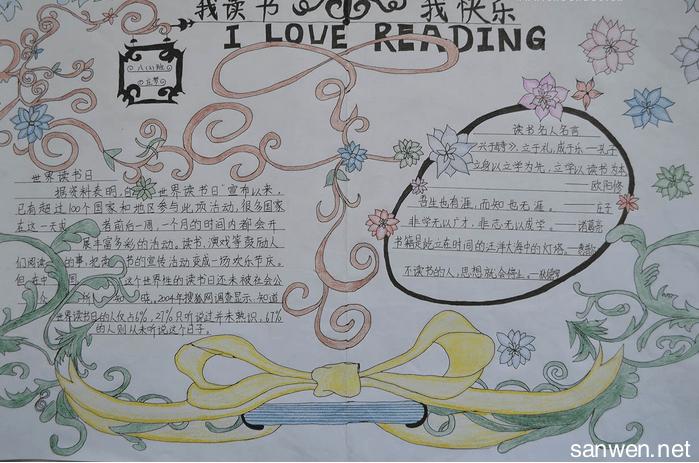 我读书 我快乐
I LOVE READING
八(2)班
世界读书日
据资料表明,自"世界读书日"宣布以来,
已有超过100个国家和地区参与此项活动,很多国家
在这一天或者前后一周,一个月的时间内都会开
展丰富多彩的活动。读书、演戏等鼓励人
们阅读的事,把读书的宣传活动变成一场欢乐节庆。
但在中国 这个世界性的读书日还未被社会公
众 所 知 晓,2004年搜狐网调查显示,知道
世界读书日的人仅占6%,27%只听说过并未熟识,67%
的人则从未听说这个日子。
读书名人名言
兴于《诗》,立于礼,成于乐——孔子
立身以立学为先,立学以读书为本
——欧阳修
吾生也有涯,而知也无涯。——庄子
非学无以广才,非志无以成学。——诸葛亮
书籍是屹立在时间的汪洋大海中的灯塔。
不读书的人,思想就会停止。——狄德罗
sanwen.net